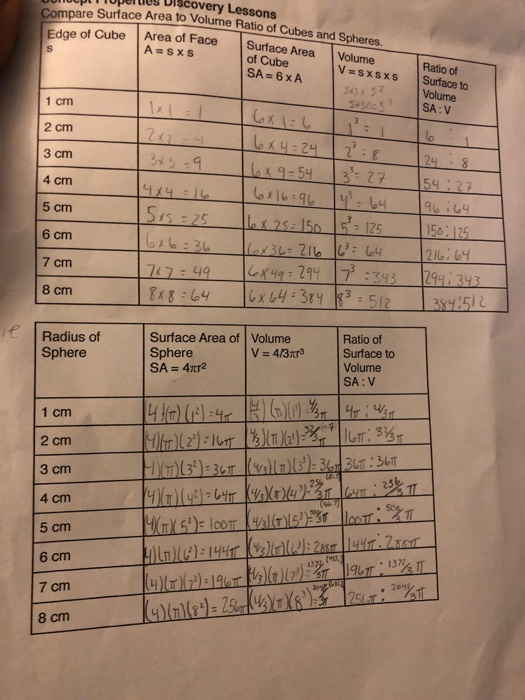 Discovery Lessons
Compare Surface Area to Volume Ratio of Cubes and Spheres.
Edge of Cube s | Area of Face A = s x s | Surface Area of Cube SA = 6 x A | Volume V = s x s x s | Ratio of Surface to Volume SA : V
1 cm | 1x1 = 1 | 6x1=6 | 1³ = 1 | 6 : 1
2 cm | 2x2 = 4 | 6x4=24 | 2³ = 8 | 24 : 8
3 cm | 3x3 = 9 | 6x9=54 | 3³ = 27 | 54 : 27
4 cm | 4x4 = 16 | 6x16=96 | 4³ = 64 | 96 : 64
5 cm | 5x5 = 25 | 6x25=150 | 5³ = 125 | 150 : 125
6 cm | 6x6 = 36 | 6x36=216 | 6³ = 64 | 216 : 64
7 cm | 7x7 = 49 | 6x49=294 | 7³ = 343 | 294 : 343
8 cm | 8x8 = 64 | 6x64=384 | 8³ = 512 | 384 : 512
Radius of Sphere | Surface Area of Sphere SA = 4πr² | Volume V = 4/3πr³ | Ratio of Surface to Volume SA : V
1 cm | 4(π)(1²) = 4π | (4/3)(π)(1³) = 4/3π | 4π : 4/3π
2 cm | (4)(π)(2²) = 16π | (4/3)(π)(2³) = 32/3π | 16π : 32/3π
3 cm | (4)(π)(3²) = 36π | (4/3)(π)(3³) = 36π | 36π : 36π
4 cm | (4)(π)(4²) = 64π | (4/3)(π)(4³) = 256/3π | 64π : 256/3 π
5 cm | (4)(π)(5²) = 100π | (4/3)(π)(5³) = 500/3π | 100π : 500/3 π
6 cm | (4)(π)(6²) = 144π | (4/3)(π)(6³) = 288π | 144π : 288π
7 cm | (4)(π)(7²) = 196π | (4/3)(π)(7³) = 1372/3π | 196π : 1372/3 π
8 cm | (4)(π)(8²) = 256π | (4/3)(π)(8³) = | 256π : 2048/3π